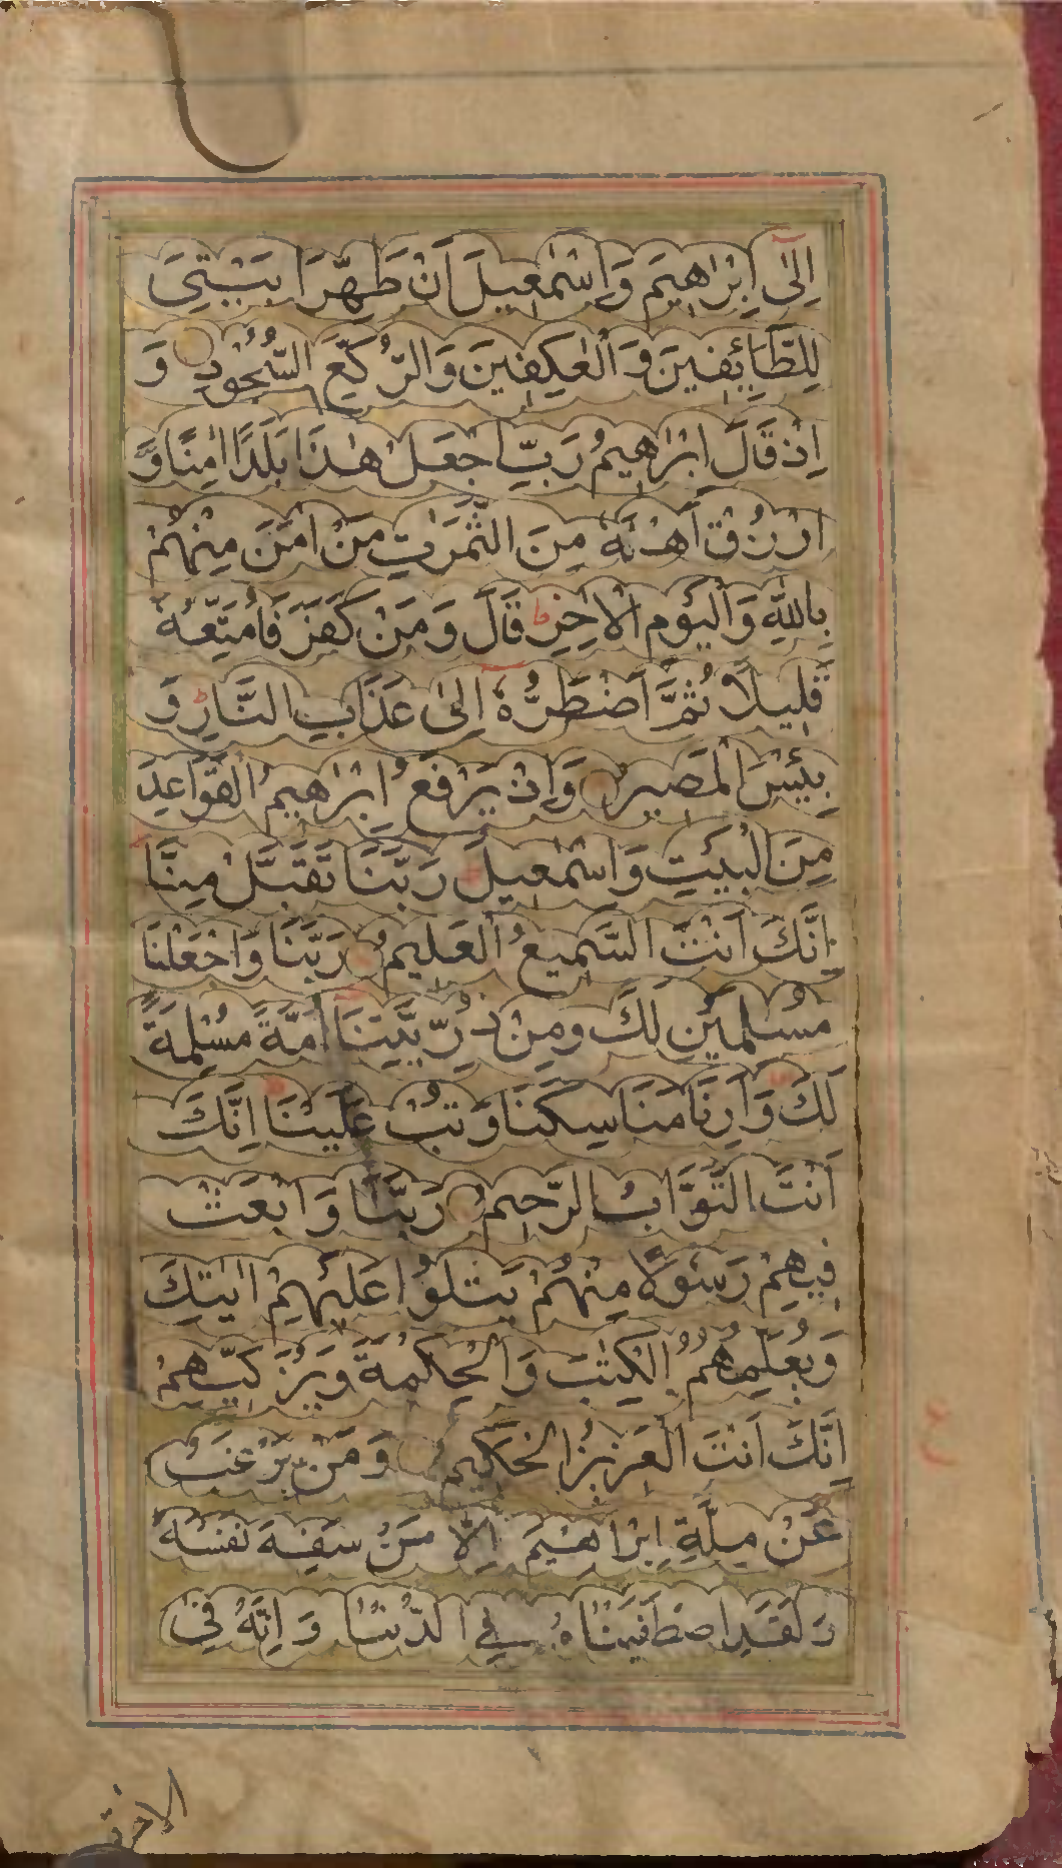 اِلٰٓى اِبْرٰاهِيمَ وَاِسْمٰعِيلَ اَنْ طَهِّرَا بَيْتِيَ
لِلطَّآئِفِينَ وَالْعٰكِفِينَ وَالرُّكَّعِ السُّجُودِ وَ
اِذْ قَالَ اِبْرٰهِيمُ رَبِّ اجْعَلْ هٰذَا بَلَدًا اٰمِنًا وَّ
ارْزُقْ اَهْلَهٗ مِنَ الثَّمَرٰتِ مَنْ اٰمَنَ مِنْهُمْ
بِاللّٰهِ وَالْيَوْمِ الْاٰخِرِ ط قَالَ وَمَنْ كَفَرَ فَاُمَتِّعُهٗ
قَلِيلًا ثُمَّ اَضْطَرُّهٗٓ اِلٰى عَذَابِ النَّارِ ط وَ
بِئْسَ الْمَصِيرُ وَاِذْ يَرْفَعُ اِبْرٰهِيمُ الْقَوَاعِدَ
مِنَ الْبَيْتِ وَاِسْمٰعِيلُ رَبَّنَا تَقَبَّلْ مِنَّا
اِنَّكَ اَنْتَ السَّمِيعُ الْعَلِيمُ رَبَّنَا وَاجْعَلْنَا
مُسْلِمَيْنِ لَكَ وَمِنْ ذُرِّيَّتِنَآ اُمَّةً مُسْلِمَةً
لَكَ وَاَرِنَا مَنَاسِكَنَا وَتُبْ عَلَيْنَا اِنَّكَ
اَنْتَ التَّوَّابُ الرَّحِيمُ رَبَّنَا وَابْعَثْ
فِيهِمْ رَسُولًا مِنْهُمْ يَتْلُوْا عَلَيْهِمْ اٰيٰتِكَ
وَيُعَلِّمُهُمُ الْكِتٰبَ وَالْحِكْمَةَ وَيُزَكِّيهِمْ
اِنَّكَ اَنْتَ الْعَزِيزُ الْحَكِيمُ وَمَنْ يَرْغَبُ
ع
عَنْ مِلَّةِ اِبْرَاهِيمَ اِلَّا مَنْ سَفِهَ نَفْسَهٗ
وَلَقَدِ اصْطَفَيْنَاهُ فِي الدُّنْيَا وَاِنَّهٗ فِي
الاخرة